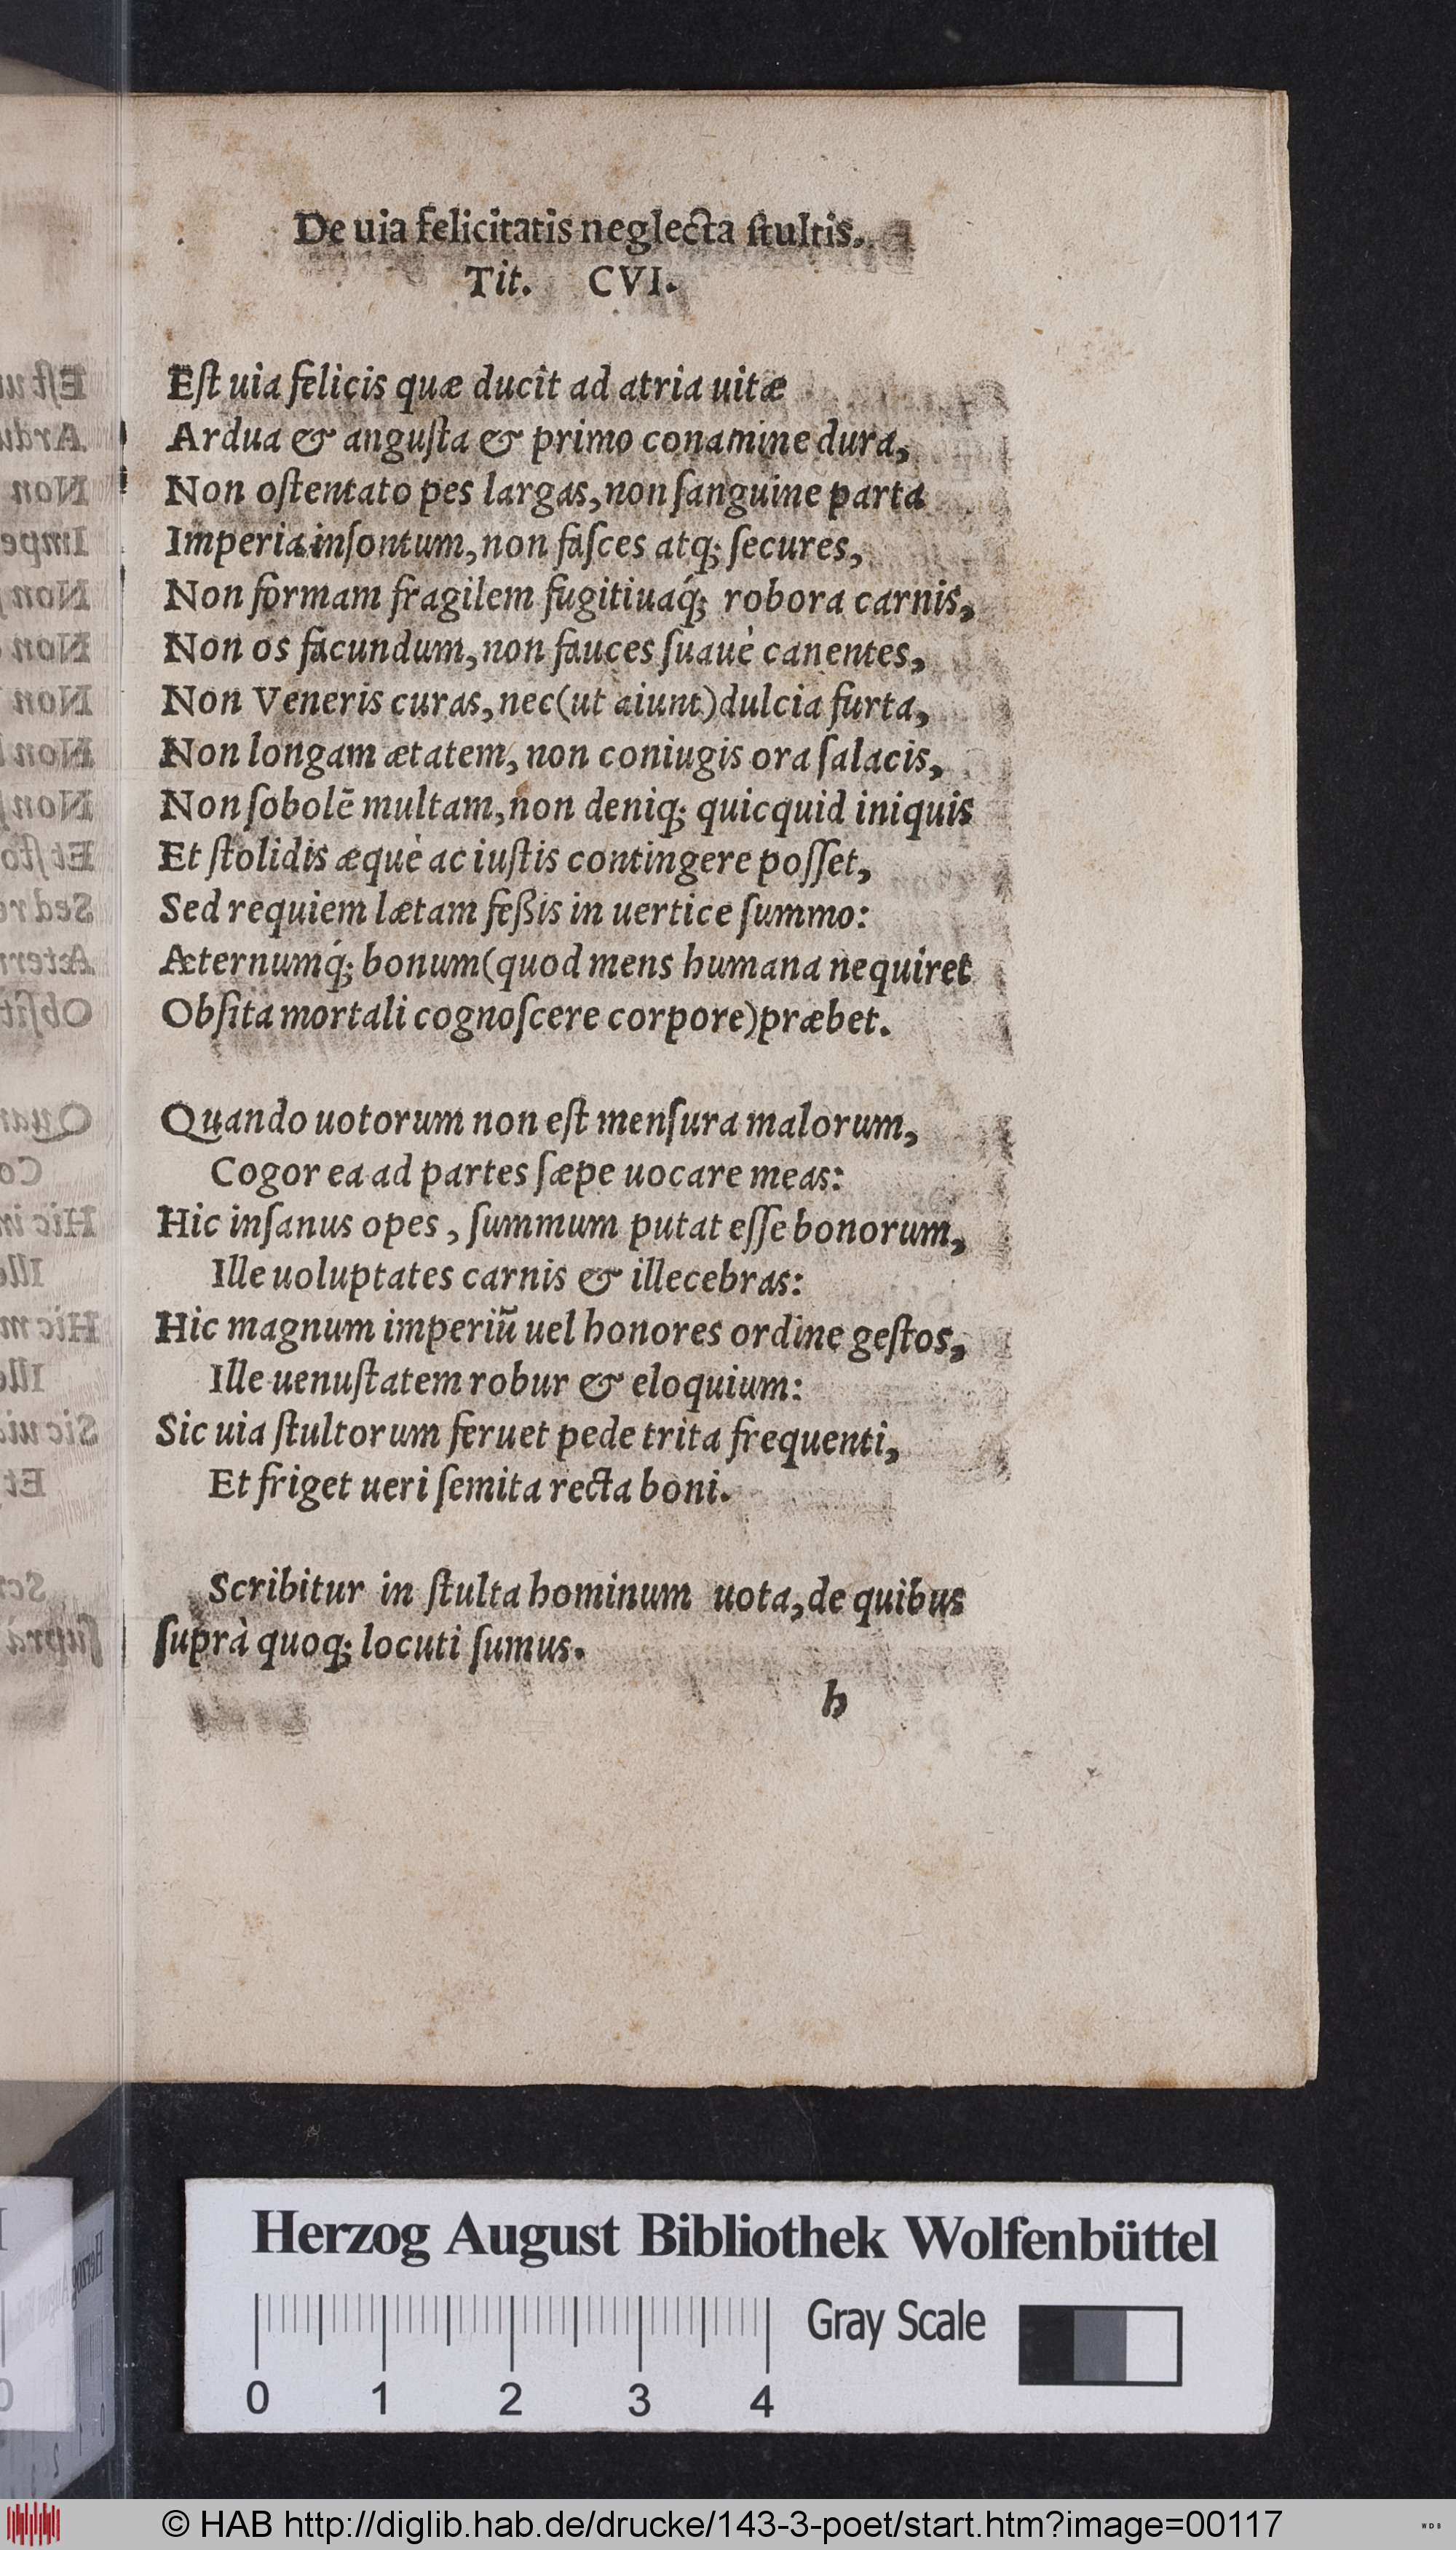 De uia felicitatis neglecta ſtultis.
Tit. CVI.
Eſt uia felicis quæ ducit ad atria uitæ
Ardua & anguſta & primo conamine dura,
Non oſtentato pes largas, non ſanguine parta
Imperia inſontum, non faſces atq; ſecures,
Non formam fragilem fugitiuaq́; robora carnis,
Non os facundum, non fauces ſuauè canentes,
Non Veneris curas, nec (ut aiunt) dulcia furta,
Non longam ætatem, non coniugis ora ſalacis,
Non ſobolē multam, non deniq; quicquid iniquis
Et ſtolidis æquè ac iuſtis contingere poſſet,
Sed requiem lætam feßis in uertice ſummo:
Æternumq́; bonum (quod mens humana nequiret
Obſita mortali cognoſcere corpore) præbet.
Quando uotorum non eſt menſura malorum,
Cogor ea ad partes ſæpe uocare meas:
Hic inſanus opes, ſummum putat eſſe bonorum,
Ille uoluptates carnis & illecebras:
Hic magnum imperiū uel honores ordine geſtos,
Ille uenuſtatem robur & eloquium:
Sic uia ſtultorum feruet pede trita frequenti,
Et friget ueri ſemita recta boni.
Scribitur in ſtulta hominum uota, de quibus
ſuprà quoq; locuti ſumus.
h
Herzog August Bibliothek Wolfenbüttel
Gray Scale
0 1 2 3 4
© HAB http://diglib.hab.de/drucke/143-3-poet/start.htm?image=00117